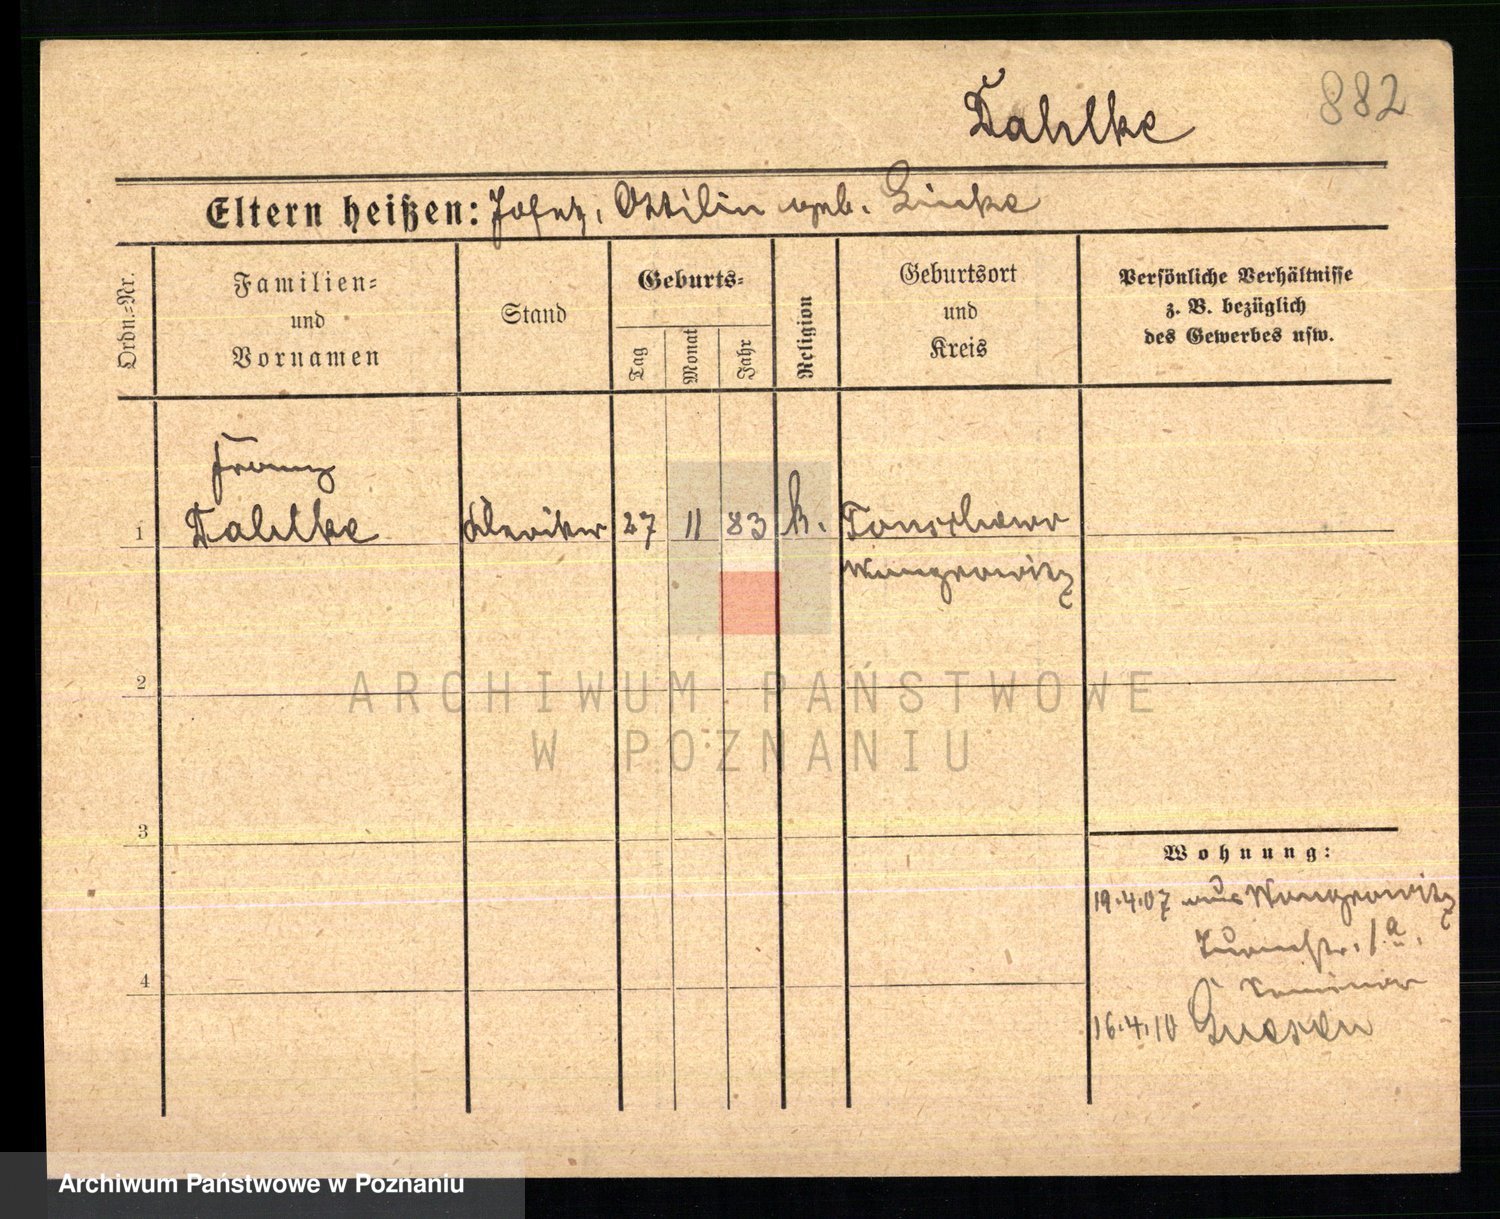 882
Dahlke
Eltern heißen: Josef, Ottilie geb. Lincke
Ordn.=Nr.
Familien=
und
Vornamen
Stand
Geburts=
Tag
Monat
Jahr
Religion
Geburtsort
und
Kreis
Persönliche Verhältnisse
z. B. bezüglich
des Gewerbes usw.
Franz
1 Dahlke Kleriker 27 11 83 k.
Wongrowitz
2
ARCHIWUM PAŃSTWOWE
W POZNANIU
3
Wohnung:
19.4.07 aus Wongrowitz
Turmstr. 1a.
Seminar
4
16.4.10 Gnesen
Archiwum Państwowe w Poznaniu